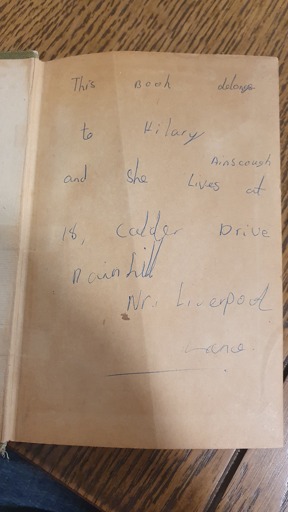 This Book delongs
to Hilary
Ainscough
and She Lives at
18, Calder Drive
Rainhill
Nr. Liverpool
Lancs.